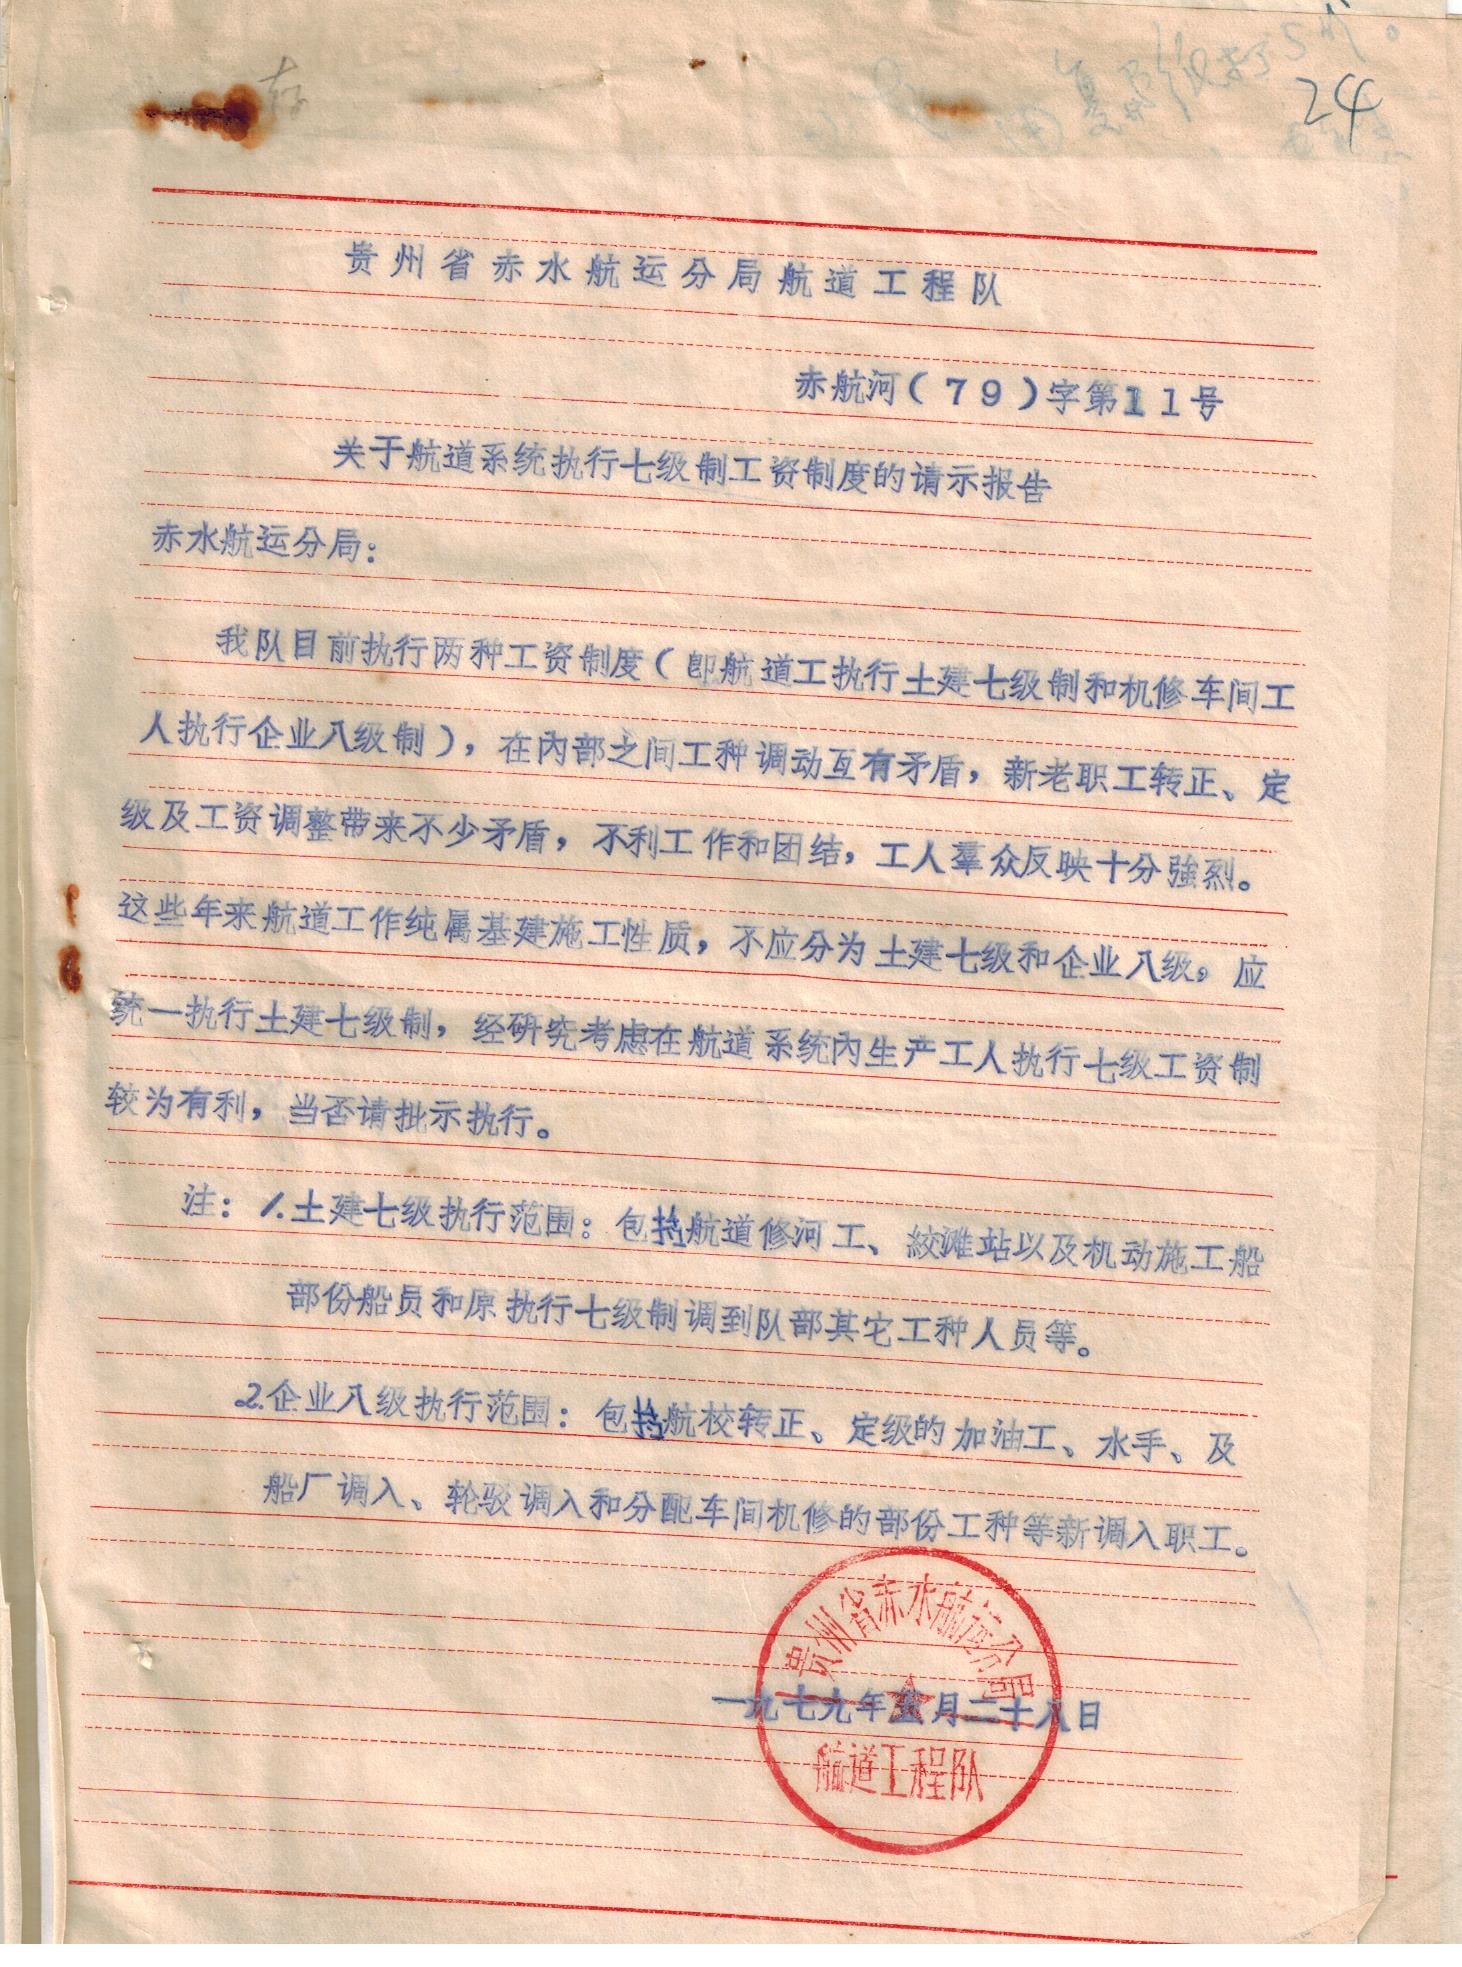 存
24
贵州省赤水航运分局航道工程队
赤航河(79)字第11号
关于航道系统执行七级制工资制度的请示报告
赤水航运分局:
我队目前执行两种工资制度(即航道工执行土建七级制和机修车间工
人执行企业八级制),在内部之间工种调动互有矛盾,新老职工转正、定
级及工资调整带来不少矛盾,不利工作和团结,工人羣众反映十分強烈。
这些年来航道工作纯属基建施工性质,不应分为土建七级和企业八级,应
统一执行土建七级制,经研究考虑在航道系统内生产工人执行七级工资制
较为有利,当否请批示执行。
注:1.土建七级执行范围:包括航道修河工、絞滩站以及机动施工船
部份船员和原执行七级制调到队部其它工种人员等。
2.企业八级执行范围:包括航校转正、定级的加油工、水手、及
船厂调入、轮驳调入和分配车间机修的部份工种等新调入职工。
贵州省赤水航运分局
一九七九年五月二十八日
航道工程队